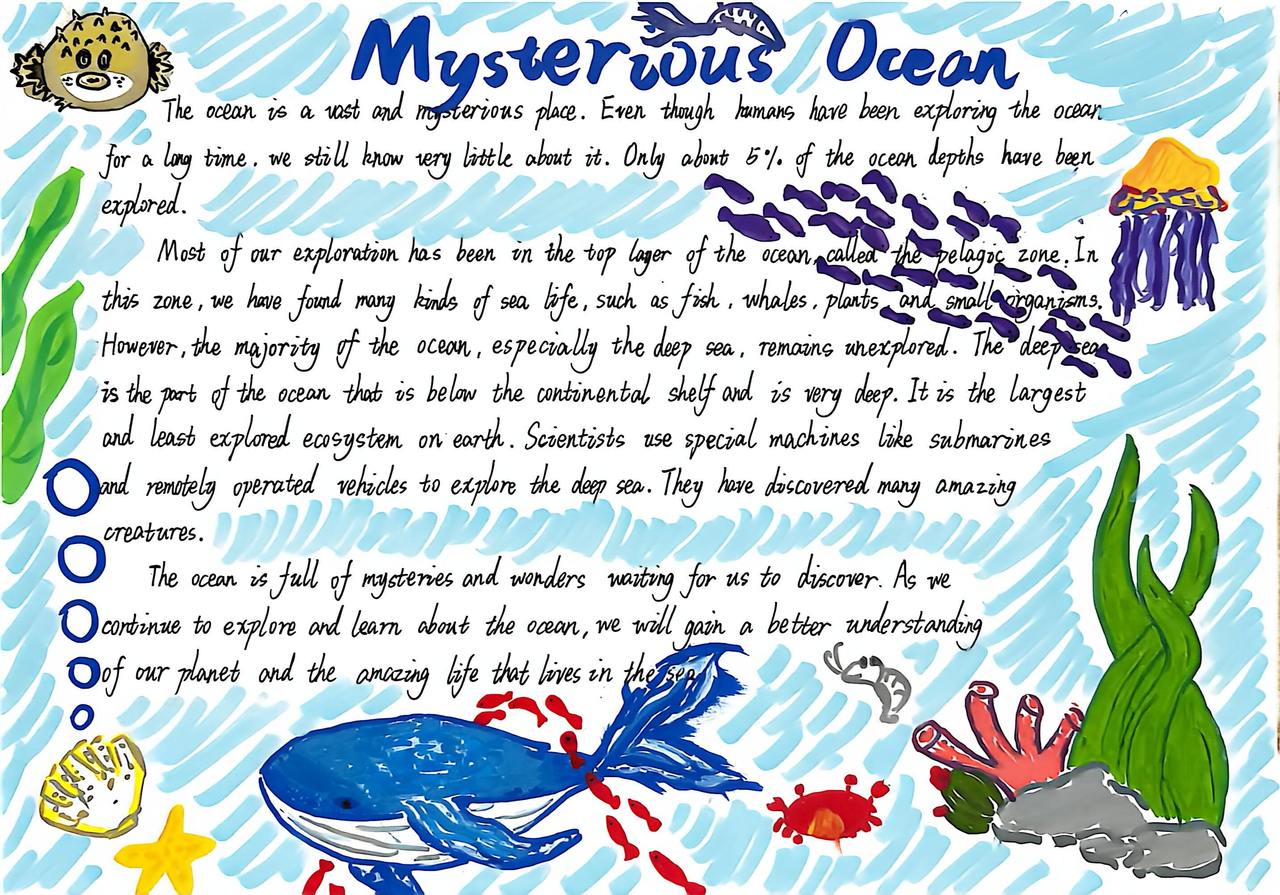 Mysterious Ocean
The ocean is a vast and mysterious place. Even though humans have been exploring the ocean
for a long time, we still know very little about it. Only about 5% of the ocean depths have been
explored.
Most of our exploration has been in the top layer of the ocean, called the pelagic zone. In
this zone, we have found many kinds of sea life, such as fish, whales, plants and small organisms.
However, the majority of the ocean, especially the deep sea, remains unexplored. The deep sea
is the part of the ocean that is below the continental shelf and is very deep. It is the largest
and least explored ecosystem on earth. Scientists use special machines like submarines
and remotely operated vehicles to explore the deep sea. They have discovered many amazing
creatures.
The ocean is full of mysteries and wonders waiting for us to discover. As we
continue to explore and learn about the ocean, we will gain a better understanding
of our planet and the amazing life that lives in the sea.